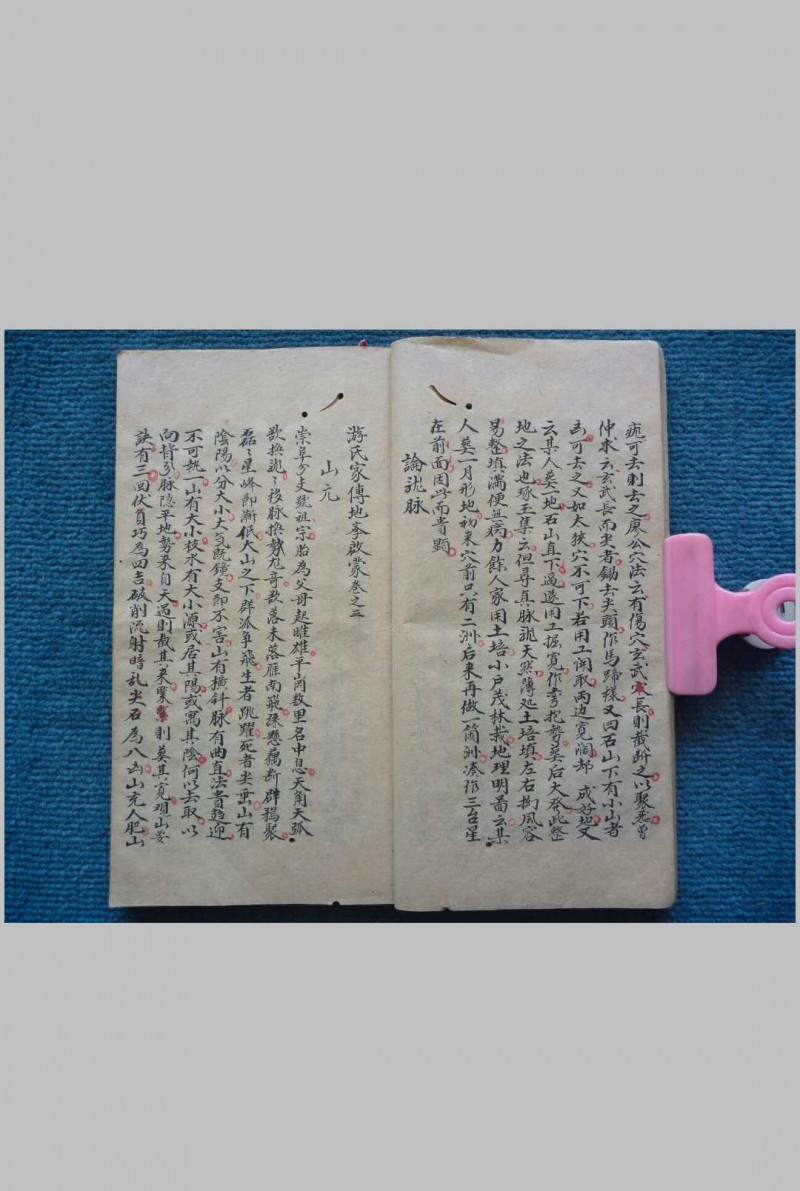 疵可去則去之廖公穴法云有傷穴玄武家長則裁斷之以聚
仲求云玄武長而尖者鋤去尖頭作馬蹄樣又曰石山下有小山者
可去之又如太狹穴不可下若用工開取兩边寬濶却成好地又
云某人葬一地石山直下過遂用工掘寬作勢葬后大發此整
地之法也琢玉集云但尋真脉龍天然薄処土培填左右拘風容
易整填滿便益為力餘人家用土培小戶茂林栽地理明啚云某
人葬一月形地初來穴前只有二洲后来再做一箇洲湊作三台星
在前面因此而貴顯
論龍脉
游氏家傳地峯啟蒙卷之三
山元
崇阜分支號祖宗胎為父母起雌雄平崗数里名中息天角天弧
欲換龍〻移脉換勢尨哥欲落未落雁南飛疎懸藕断辟鶏聚
磊〻星峰即漸低大山之下群派争飛生者跳躍死者尖垂山有
陰陽以分大小大気既鍾支即不害山有橫斜脉有曲直法貴趨迎
不可執一山有大小枝水有大小源或居其陽或寓其陰何以去取以
向背分脉隱平地勢来自天遇則裁其来緊則葬其寬坦山妄
訣有三回伏負巧為四吉破削流射暗乱尖石為八凶山充人肥山